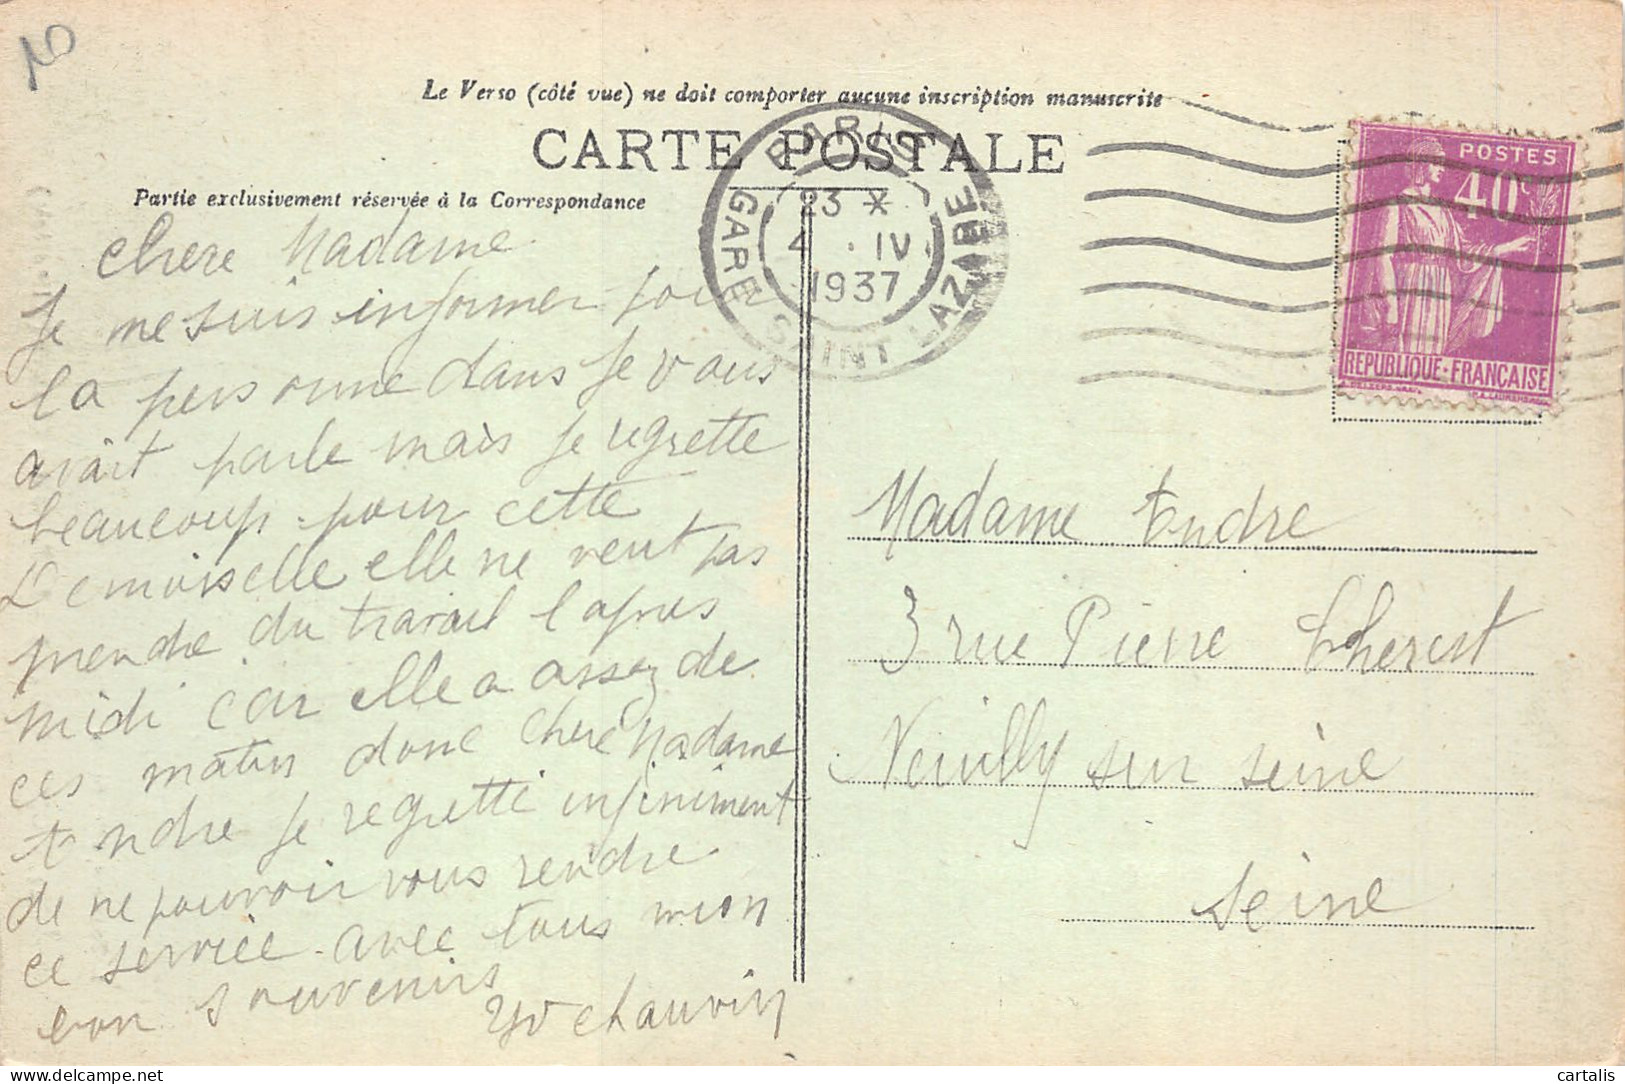 10
Le Verso (côté vue) ne doit comporter aucune inscription manuscrite
CARTE POSTALE
Partie exclusivement réservée à la Correspondance
PARIS
GARE SAINT LAZARE
23 X
4 . IV
1937
POSTES
40c
REPUBLIQUE·FRANCAISE
Chere Madame
Je me suis informer pour
la personne dans je vous
avait parle mais je regrette
beaucoup pour cette
Demoiselle elle ne veut pas
prendre du travail l'apres
midi car elle a assez de
ces matin donc chere Madame
Andre je regrette infiniment
de ne pouvoir vous rendre
ce service avec tous mon
bon souvenirs
Chauvin
Madame Andre
3 rue Pierre Cherest
Neuilly sur seine
Seine
cartalis